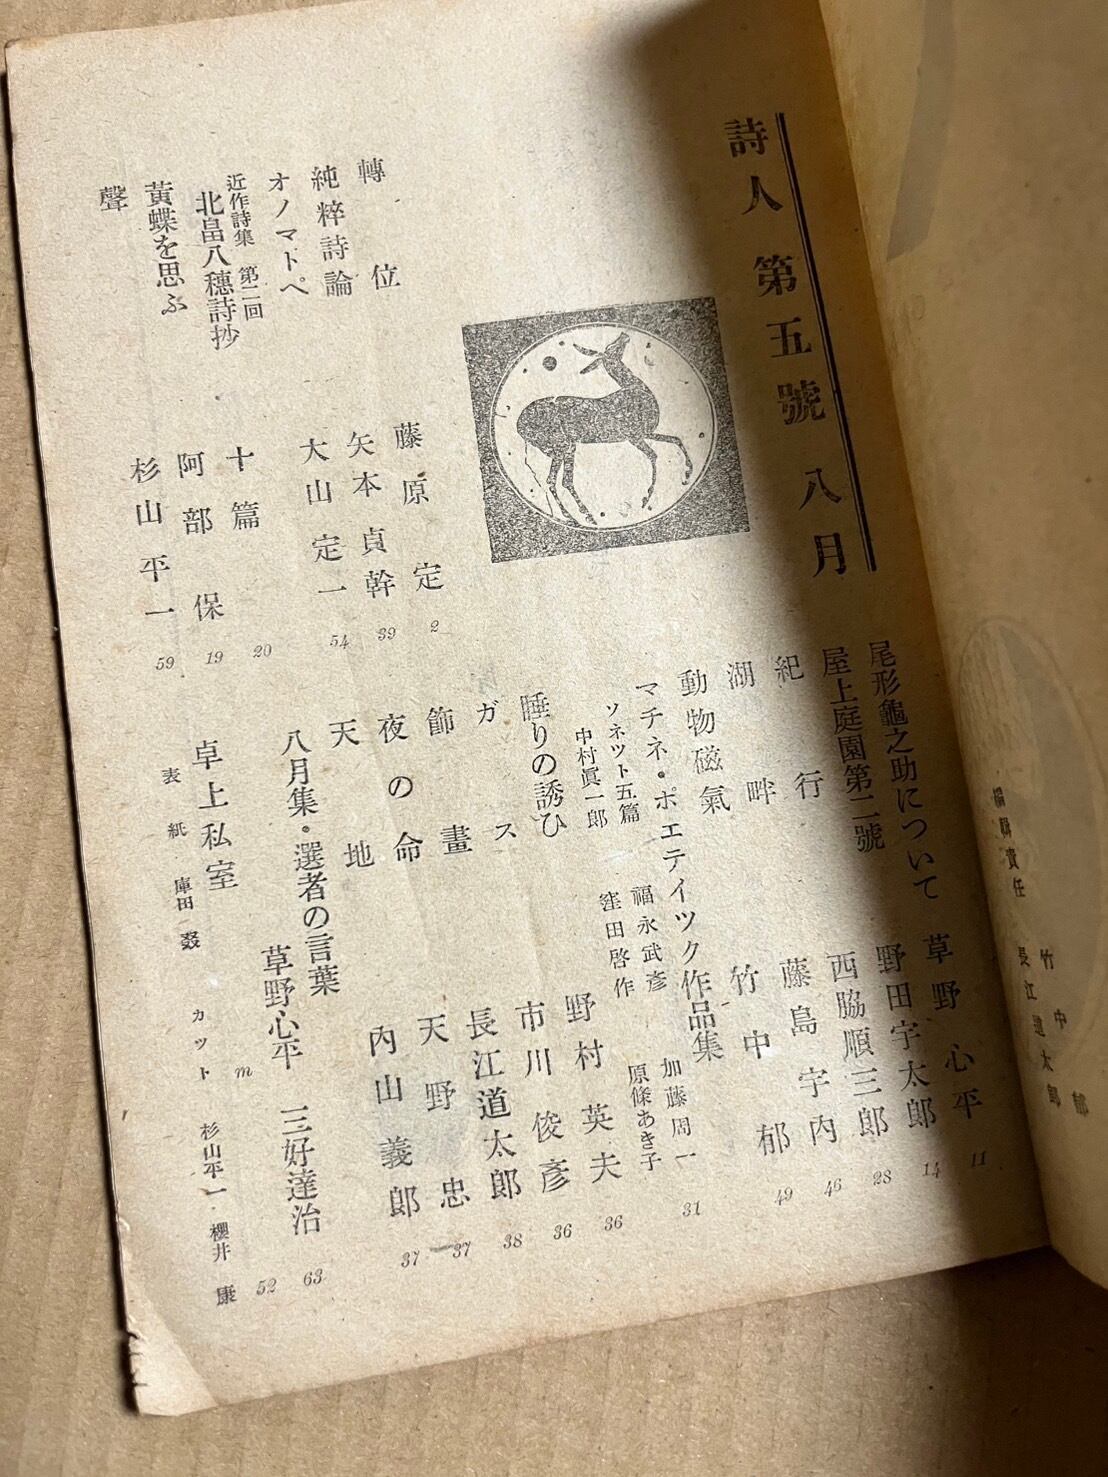 詩人 第五號 八月
轉位 藤原定 2
純粹詩論 矢本貞幹 39
オノマトペ 大山定一 54
近作詩集 第二回
北畠八穗詩抄 十篇 20
黃蝶を思ふ 阿部保 19
聲 杉山平一 59
尾形龜之助について 草野心平 11
屋上庭園第二號 野田宇太郎 14
紀行 西脇順三郎 28
湖畔 藤島宇內 46
動物磁氣 竹中郁 49
マチネ・ポエテイツク作品集 31
ソネツト五篇 福永武彥 加藤周一
中村眞一郎 窪田啓作 原條あき子
睡りの誘ひ 野村英夫 36
ガス 市川俊彥 36
飾畫 長江道太郎 38
夜の命 天野忠 37
天地 內山義郎 37
八月集・選者の言葉 草野心平 三好達治 63
卓上私室 m 52
表紙 庫田叕 カツト 杉山平一 櫻井康
編輯責任 竹中郁
長江道太郎